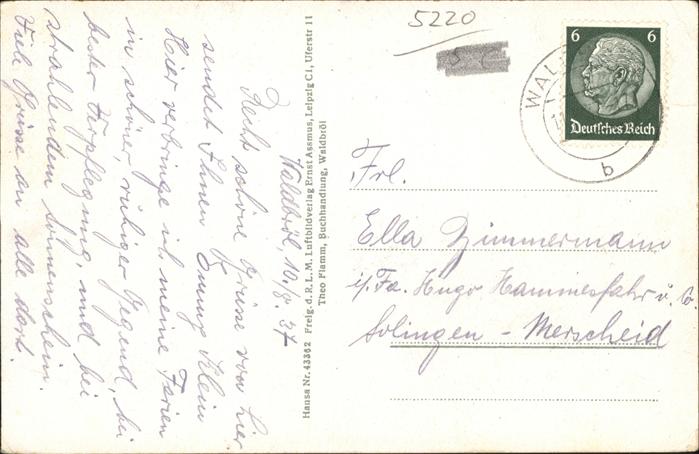 5220
6 6
Deutsches Reich
WAL
b
Waldbröl, 10./8. 37
Recht schöne Grüsse von hier
sendet Ihnen Emmy Klein
Hier verbringe ich meine Ferien
in schöner, ruhiger Gegend, bei
bester Verpflegung, und bei
strahlendem Sonnenschein.
Viele Grüsse an alle dort.
Hansa Nr. 43362 Freig. d. R. L. M. Luftbildverlag Ernst Assmus, Leipzig C1, Uferstr 11
Theo Flamm, Buchhandlung, Waldbröl
Frl.
Ella Zimmermann
i/Fa. Hugo Hammesfahr u. Co
Solingen - Merscheid